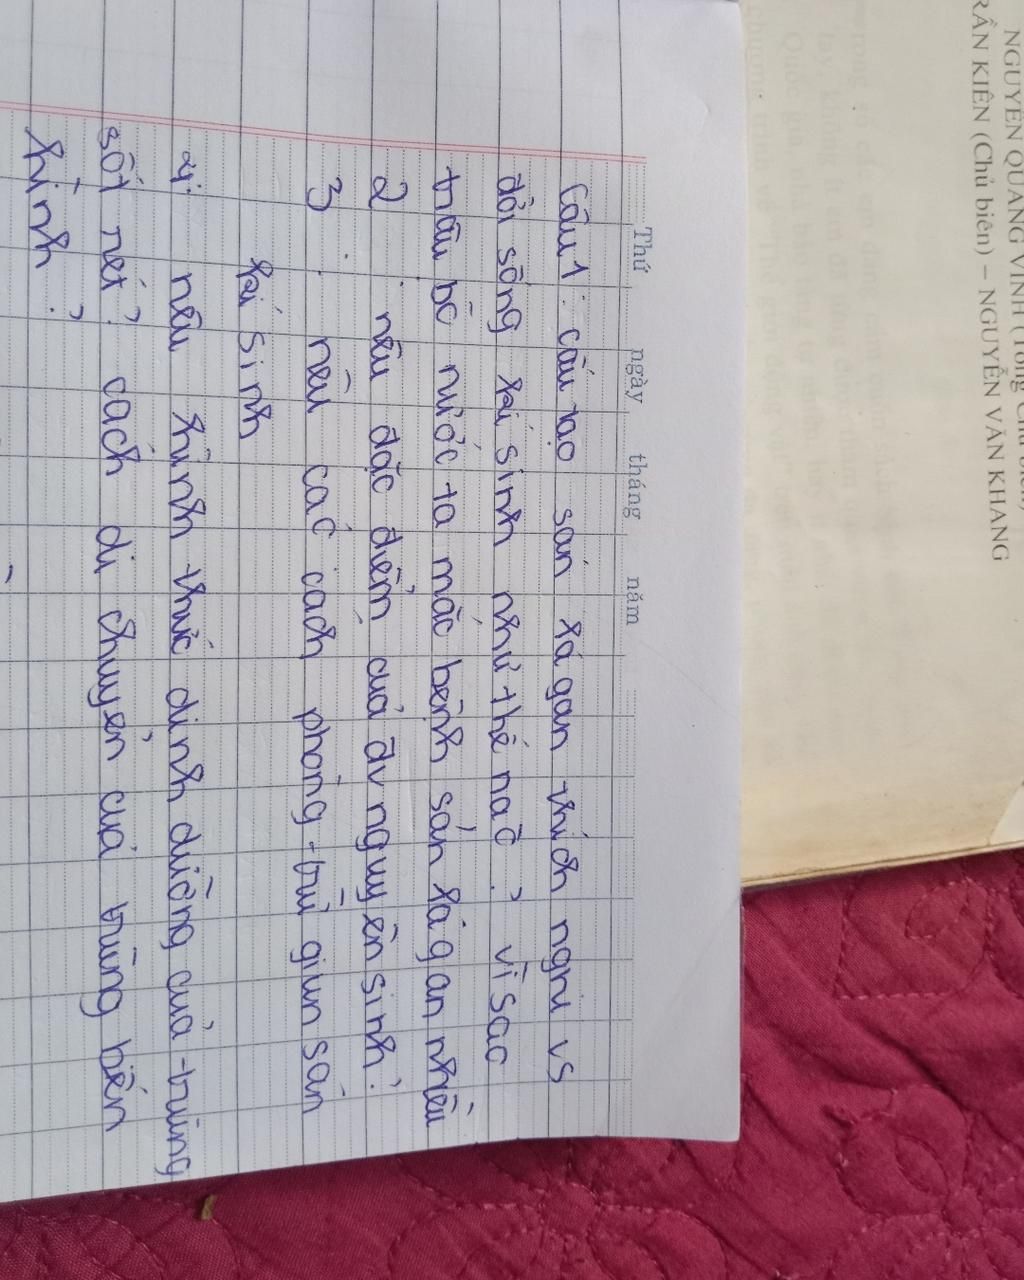 NGUYỄN QUANG VINH (Tổng Chủ biên)
TRẦN KIÊN (Chủ biên) – NGUYỄN VĂN KHANG
Thứ ngày tháng năm
Câu 1: cấu tạo sán lá gan thích nghi vs
đời sống kí sinh như thế nào? vì sao
trâu bò nước ta mắc bệnh sán lá gan nhiều
2. nêu đặc điểm của đv nguyên sinh?
3. nêu các cách phòng trừ giun sán
kí sinh
4. nêu hình thức dinh dưỡng của trùng
sốt rét? cách di chuyển của trùng biến
hình?